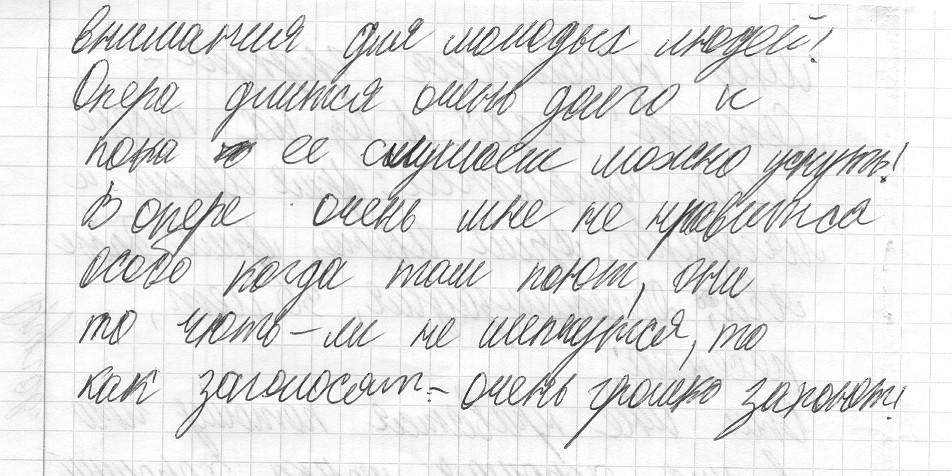 внимания для молодых людей!
Опера длится очень долго и
пока ее слушаешь можно уснуть!
В опере очень мне не нравится
особо когда там поют, они
то чють-ли не шепчутся, то
как заголосят - очень громко запоют!